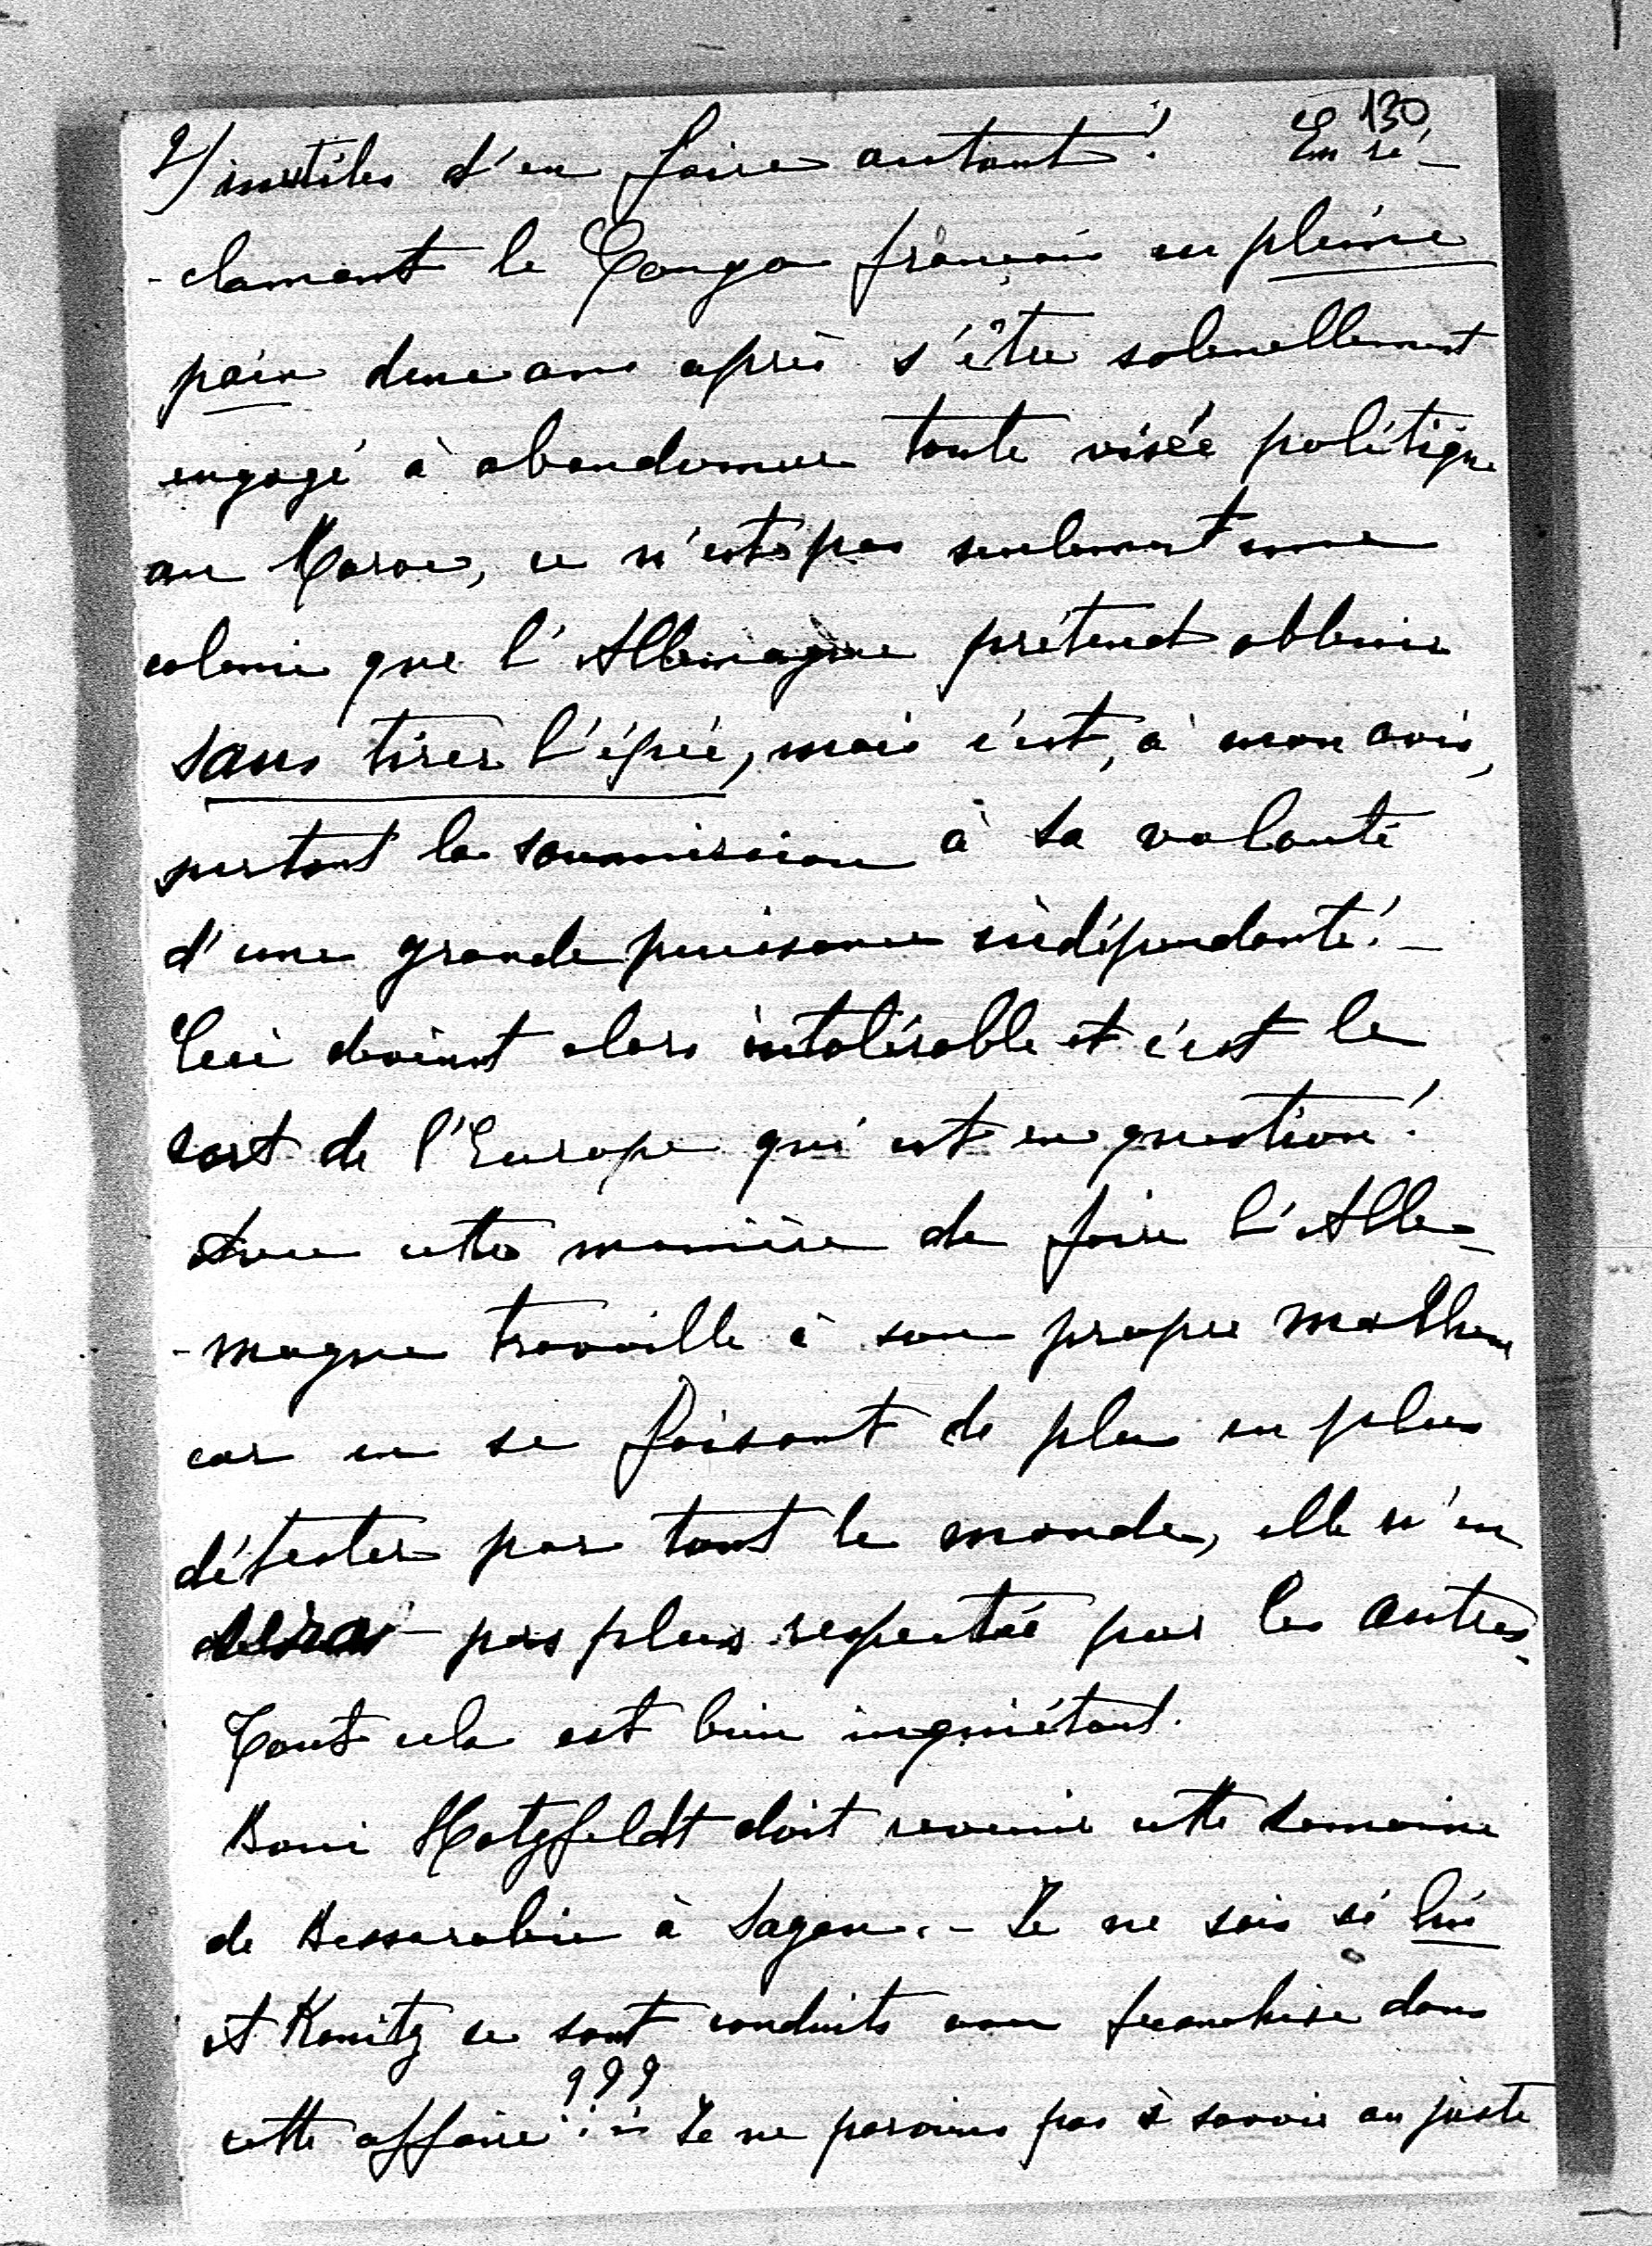 130
2/ inutiles d'en faire autant! En ré-
-clamant le Congo français en pleine
paix deux ans après s'être solenellement
engagé à abandonner toute visée politique
au Maroc, ce n'est pas seulement une
colonie que l'Allemagne prétend obtenir
sans tirer l'épée, mais c'est, à mon avis,
surtout la soumission à sa volonté
d'une grande puissance indépendante! -
Ceci devient alors intolérable et c'est le
sort de l'Europe qui est en question!
Avec cette manière de faire l'Alle-
-magne travaille à son propre malheur
car en se faisant de plus en plus
détester par tout le monde, elle n'en
sera pas plus respectée par les autres.
Tout cela est bien inquiétant.
Boni Hatzfeldt doit revenir cette semaine
de Bessarabie à Sagan. - Je ne sais si lui
et Kanitz se sont conduits avec franchise dans
cette affaire ??? Je ne parviens pas à savoir au juste